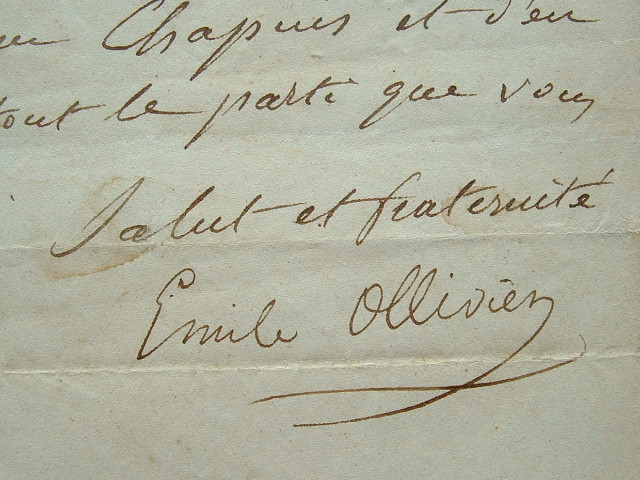 Chapuis et d'en
tout le parti que vous
Salut et fraternité
Emile Ollivier